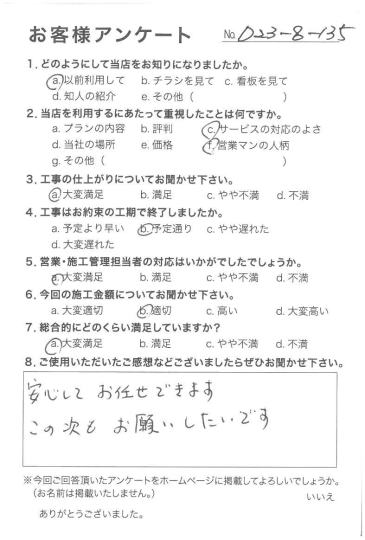 お客様アンケート
No. 023-8-135
1. どのようにして当店をお知りになりましたか。
a. 以前利用して b. チラシを見て c. 看板を見て
d. 知人の紹介 e. その他（ ）
2. 当店を利用するにあたって重視したことは何ですか。
a. プランの内容 b. 評判 c. サービスの対応のよさ
d. 当社の場所 e. 価格 f. 営業マンの人柄
g. その他（ ）
3. 工事の仕上がりについてお聞かせ下さい。
a. 大変満足 b. 満足 c. やや不満 d. 不満
4. 工事はお約束の工期で終了しましたか。
a. 予定より早い b. 予定通り c. やや遅れた
d. 大変遅れた
5. 営業・施工管理担当者の対応はいかがでしたでしょうか。
a. 大変満足 b. 満足 c. やや不満 d. 不満
6. 今回の施工金額についてお聞かせ下さい。
a. 大変適切 b. 適切 c. 高い d. 大変高い
7. 総合的にどのくらい満足していますか？
a. 大変満足 b. 満足 c. やや不満 d. 不満
8. ご使用いただいたご感想などございましたらぜひお聞かせ下さい。
安心して お任せできます
この次も お願いしたいです
※今回ご回答頂いたアンケートをホームページに掲載してよろしいでしょうか。
（お名前は掲載いたしません。） いいえ
ありがとうございました。